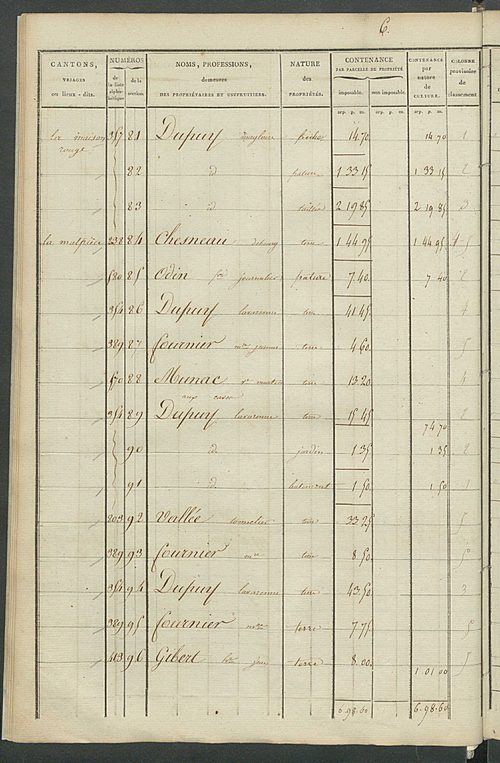 6.
CANTONS, NUMÉROS NOMS, PROFESSIONS, NATURE CONTENANCE CONTENANCE COLONNE
PAR PARCELLE DE PROPRIÉTÉ par provisoire
TRIAGES de la liste alphabétique de la section. demeures des nature de
ou lieux-dits. DES PROPRIÉTAIRES ET USUFRUITIERS. PROPRIÉTÉS. imposable. non imposable. de CULTURE. classement
arp. p. m. arp. p. m. arp. p. m.
la maison rouge 357 81 Dupuy 14.70 14.70 1
82 id pature 1 33 15 1 33 15 2
83 id 2 19 85 2 19 85 3
la malpièce 238 84 Chesneau terre 1 44 95 1 44 95
580 85 Odin journalier 7.40 7 40
354 86 Dupuy lavaronne terre 41.45 4
389 87 fournier terre 4.60 5
570 88 Munac terre 13.20 4
354 89 Dupuy lavaronne terre 15 45 2
74 70
90 id jardin 1.35 1 35
91 id batiment 1.50 1 50
203 92 Vallée tonnelier terre 33 25 5
389 93 fournier terre 8.50 5
354 94 Dupuy lavaronne terre 43.50 3
389 95 fournier terre 7.75 5
96 Gibert terre 8.00 5
1 01 00
6.98.60 6.98.60